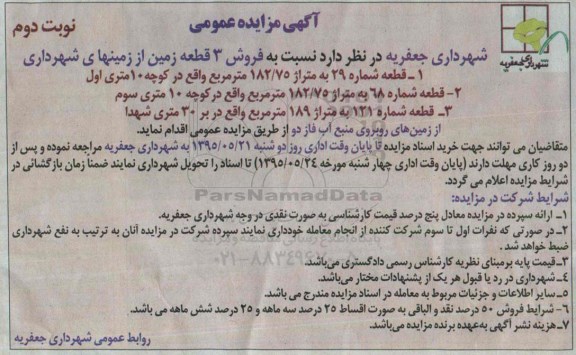 آگهی مزایده عمومی
نوبت دوم
شهرداری جعفریه
شهرداری جعفریه در نظر دارد نسبت به فروش ۳ قطعه زمین از زمینها ی شهرداری
۱ ـ قطعه شماره ۲۹ به متراژ ۱۸۲/۷۵ مترمربع واقع در کوچه ۱۰متری اول
۲- قطعه شماره ۶۸ به متراژ ۱۸۲/۷۵ مترمربع واقع درکوچه ۱۰ متری سوم
۳ـ قطعه شماره ۱۳۱ به متراژ ۱۸۹ مترمربع واقع در بر ۳۰ متری شهدا
از زمین‌های روبروی منبع آب فاز دو از طریق مزایده عمومی اقدام نماید.
متقاضیان می توانند جهت خرید اسناد مزایده تا پایان وقت اداری روز دو شنبه ۱۳۹۵/۰۵/۲۱ به شهرداری جعفریه مراجعه نموده و پس از
دو روز کاری مهلت دارند (پایان وقت اداری چهار شنبه مورخه ۱۳۹۵/۰۵/۲۴) تا اسناد را تحویل شهرداری نمایند ضمنا زمان بازگشائی در
شرایط مزایده اعلام می گردد.
شرایط شرکت در مزایده:
۱ـ ارائه سپرده در مزایده معادل پنج درصد قیمت کارشناسی به صورت نقدی در وجه شهرداری جعفریه.
۲ـ در صورتی که نفرات اول تا سوم شرکت کننده از انجام معامله خودداری نمایند سپرده شرکت در مزایده آنان به ترتیب به نفع شهرداری
ضبط خواهد شد .
۳ـ قیمت پایه برمبنای نظریه کارشناس رسمی دادگستری می‌باشد.
۴ـ شهرداری در رد یا قبول هر یک از پشنهادات مختار می‌باشد.
۵ـ سایر اطلاعات و جزئیات مربوط به معامله در اسناد مزایده مندرج می باشد.
۶- شرایط فروش ۵۰ درصد نقد و الباقی به صورت اقساط ۲۵ درصد سه ماهه و ۲۵ درصد شش ماهه می باشد.
۷ـ هزینه نشر آگهی به‌عهده برنده مزایده می‌باشد.
روابط عمومی شهرداری جعفریه
ParsNamadData
۰۲۱-۸۸۳۴۹۶۷۰